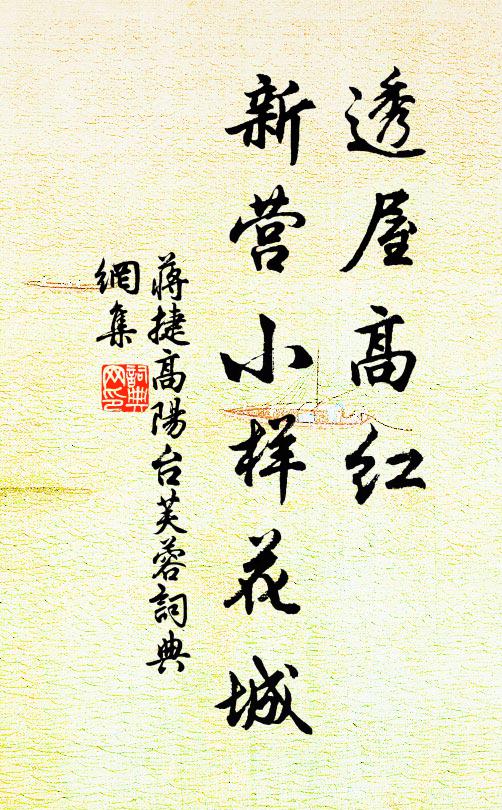 透屋高红
新营小样花城
蒋捷高陽台芙蓉詞典
網集
詞典
网印